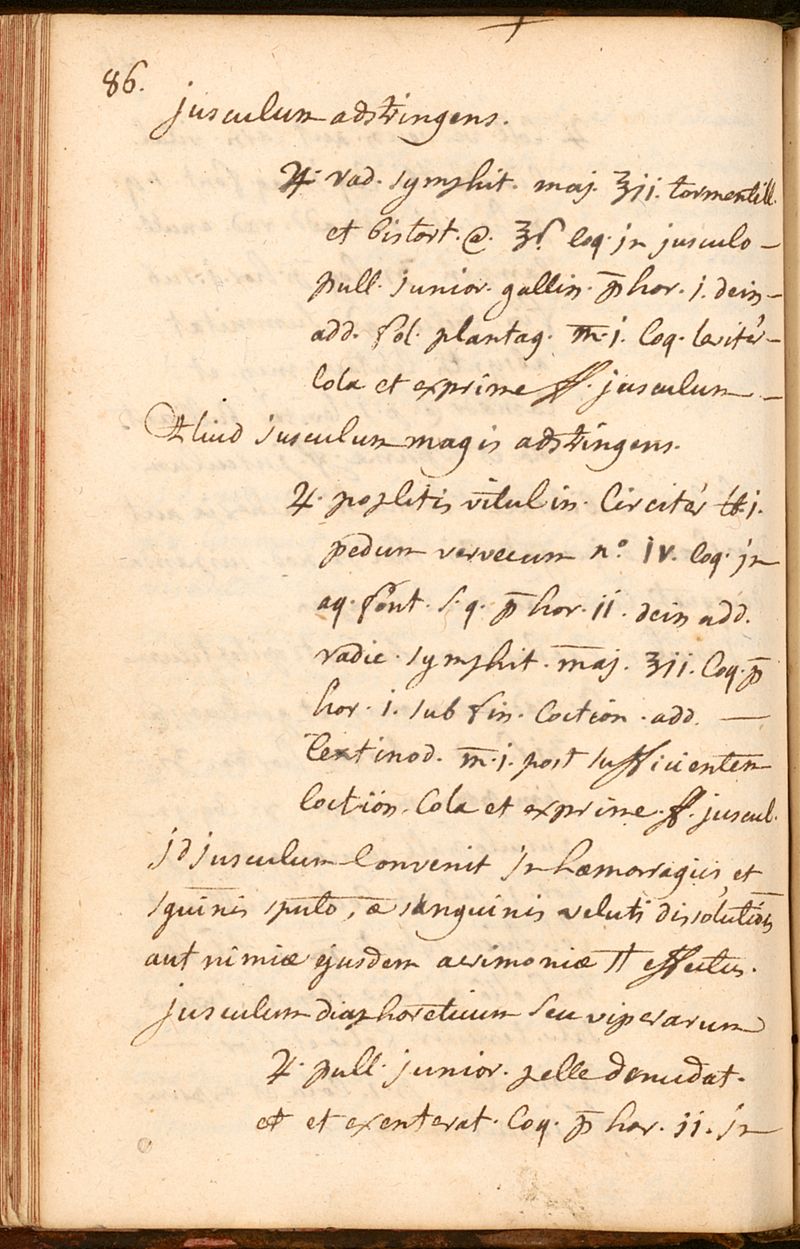 86.
jusculum adstringens.
♃. rad. symphit. maj. ʒii. tormentill.
et bistort. @. ʒſ. Coq. in jusculo
pull. junior. gallin. p̄ hor. j. dein
add. fol. plantag. m̄. j. Coq. levitèr
Cola et exprime ff. jusculum
Aliud jusculum magis adstringens.
♃. poplitis vitulin. Circitèr ℔ j.
pedum vervecum n.° iv. Coq. in
aq. font. s. q. p̄ hor. ii. dein add.
radic. symphit. maj. ʒii. Coq. p̄
hor. i. sub fin. Coction. add.
Centinod. m̄. j. post sufficientem
Coction. Cola et exprime. ff. juscul.
jd jusculum Convenit in hæmorragiis et
sguinis sputo, æ sanguinis veluti dissolutiōis
aut nimiæ ejusdem acrimoniæ st effectus.
jusculum diaphoreticum seu viperarum
♃. pull. junior. pelle denudat.
et et exenterat. Coq. p̄ hor. ii. in